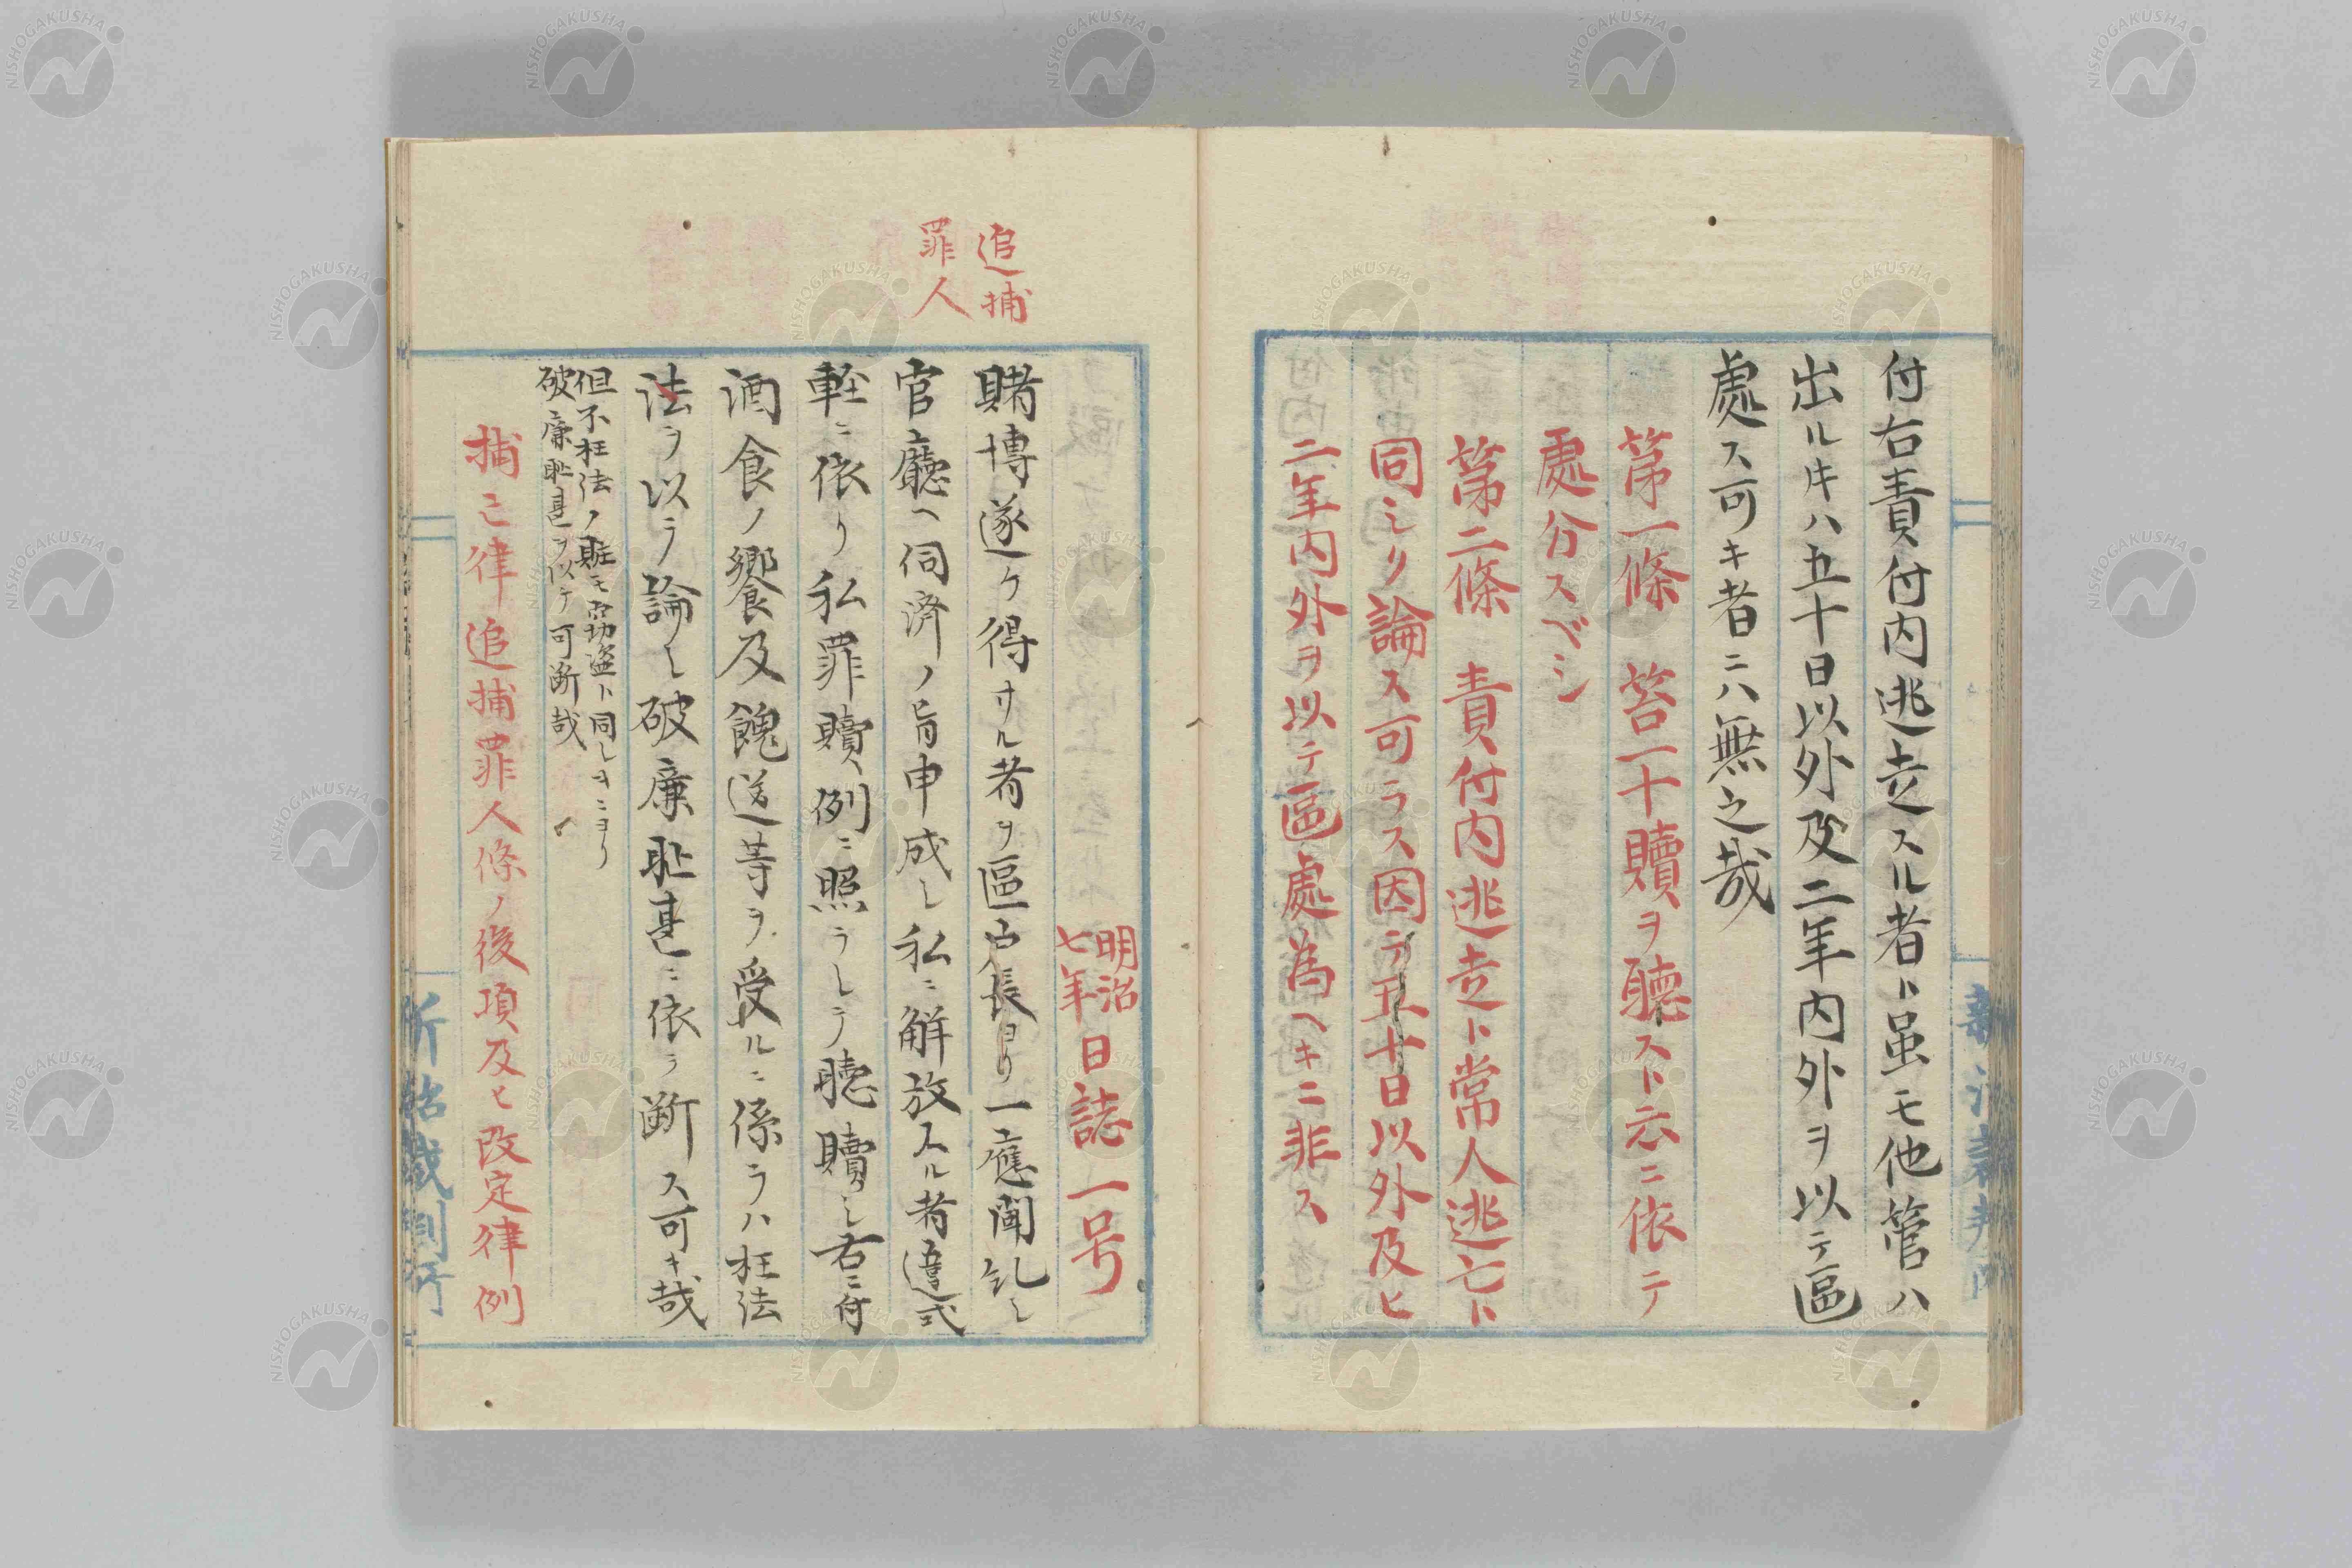 付右責付内逃走スル者ト虽モ他管ハ
出ルキハ五十日以外及二年内外ヲ以テ區
處ス可キ者ニハ無之哉
第一條 笞一十贖ヲ聴スト云ニ依テ
處分スベシ
第二條 責付内逃走ト常人逃亡ト
同シク論ス可ラス因テ五十日以外及ヒ
二年内外ヲ以テ區處為ヘキニ非ス
追捕
罪人
明治
七年
日誌一号
賭博遂ケ得サル者ヲ區戸長ヨリ一應聞糺シ
官廳ヘ伺済ノ旨申成シ私ニ解放スル者違式
軽ニ依リ私罪贖例ニ照ラシテ聴贖シ右ニ付
酒食ノ饗及餽送等ヲ受ルニ係ラハ枉法
法ヲ以テ論シ破廉耻甚ニ依テ断ス可キ哉
但不枉法ノ賍モ窃盗ト同シキニヨリ
破廉耻甚ヲ以テ可断哉
捕亡律追捕罪人條ノ後項及ヒ改定律例
新治裁判所
NISHOGAKUSHA